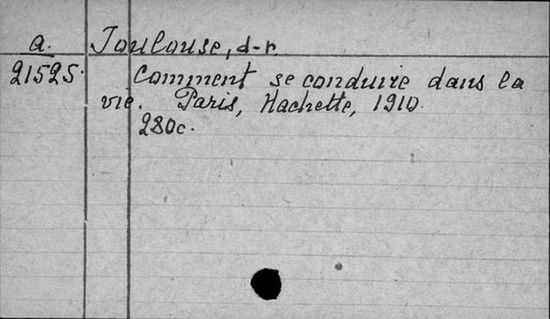 a. Toulouse, d-r.
21525. Comment se conduire dans la
vie. Paris, Hachette, 1910.
280c.